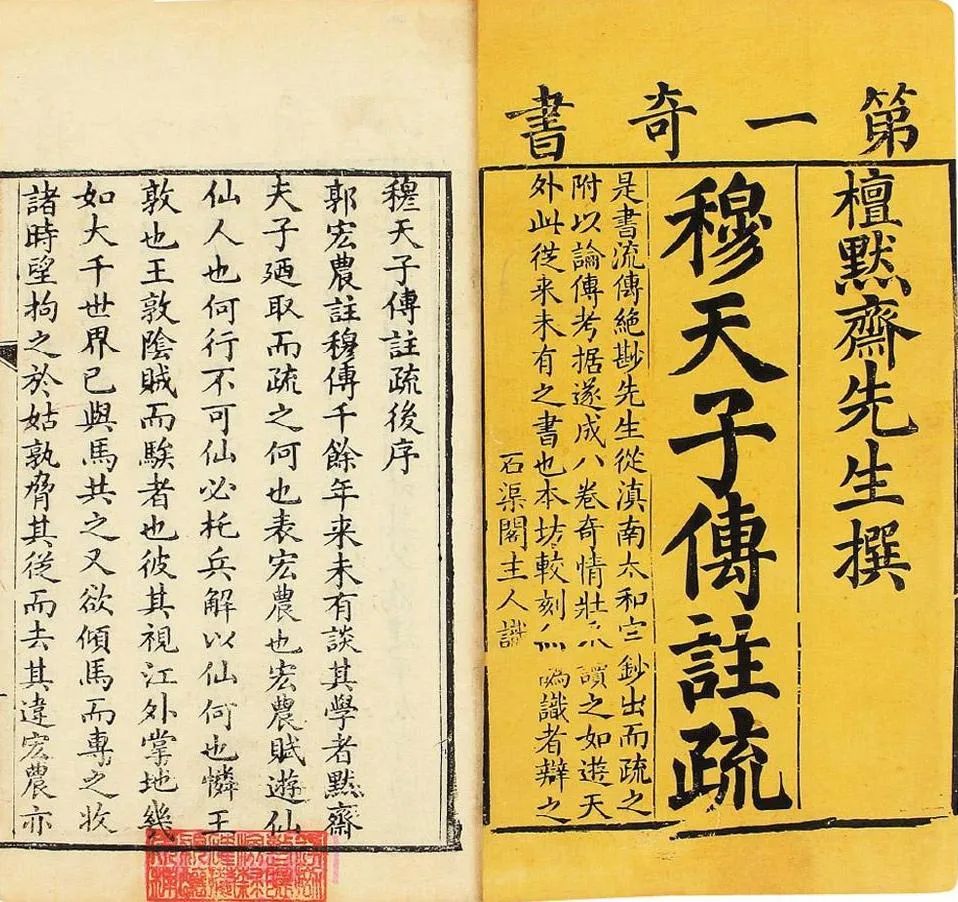 第一奇書
檀默齋先生撰
穆天子傳註疏
是書流傳絕尟先生從滇南太和寺鈔出而疏之
附以論傳考据遂成八卷奇情壯采讀之如遊天
外此從来未有之書也本坊較刻無譌識者辯之
石渠閣主人識
穆天子傳註疏後序
郭宏農註穆傳千餘年来未有談其學者默齋
夫子廼取而疏之何也表宏農也宏農賦遊仙
仙人也何行不可仙必托兵解以仙何也憐王
敦也王敦陰賊而騃者也彼其視江外掌地幾
如大千世界已與馬共之又欲傾馬而專之收
諸時望拘之於姑孰脅其從而去其違宏農亦